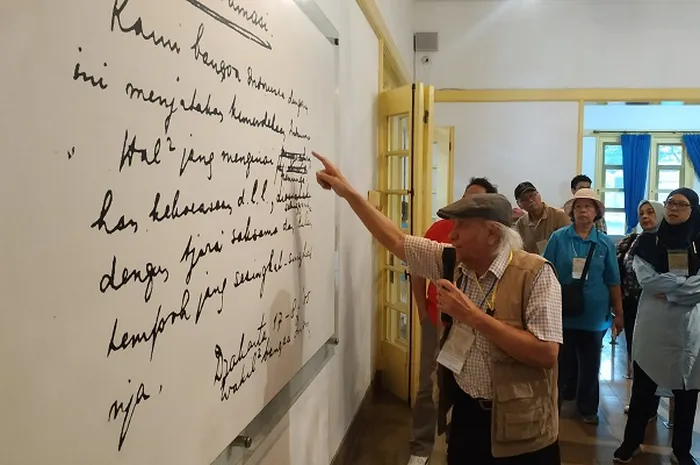 Kami bangsa Indonesia dengan
ini menjatakan kemerdekaan
Hal² jang mengenai
han kekoeasaan d.l.l.,
dengan tjara saksama da
tempoh jang sesingkat-singkat
nja.
Djakarta 17-8-'05
Wakil² bangsa